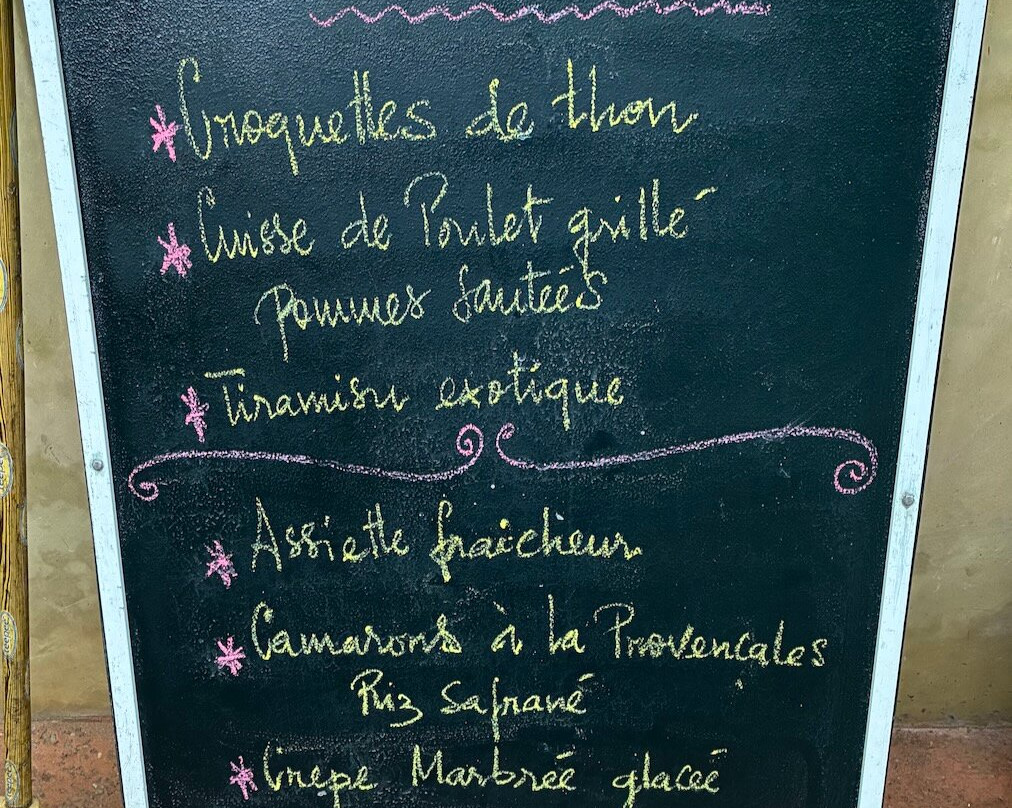 * Croquettes de thon
* Cuisse de Poulet grillé
pommes sautées
* Tiramisu exotique
* Assiette fraicheur
* Camarons à la Provençales
Riz Safrané
* Crepe Marbrée glacée